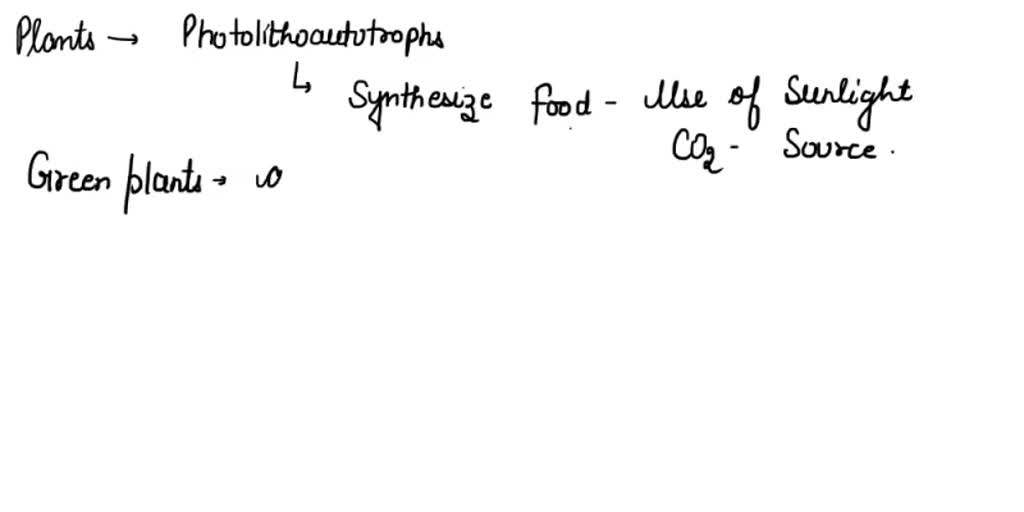 Plants → Photolithoautotrophs
↳ Synthesize food - Use of Sunlight
CO₂ - Source.
Green plants →